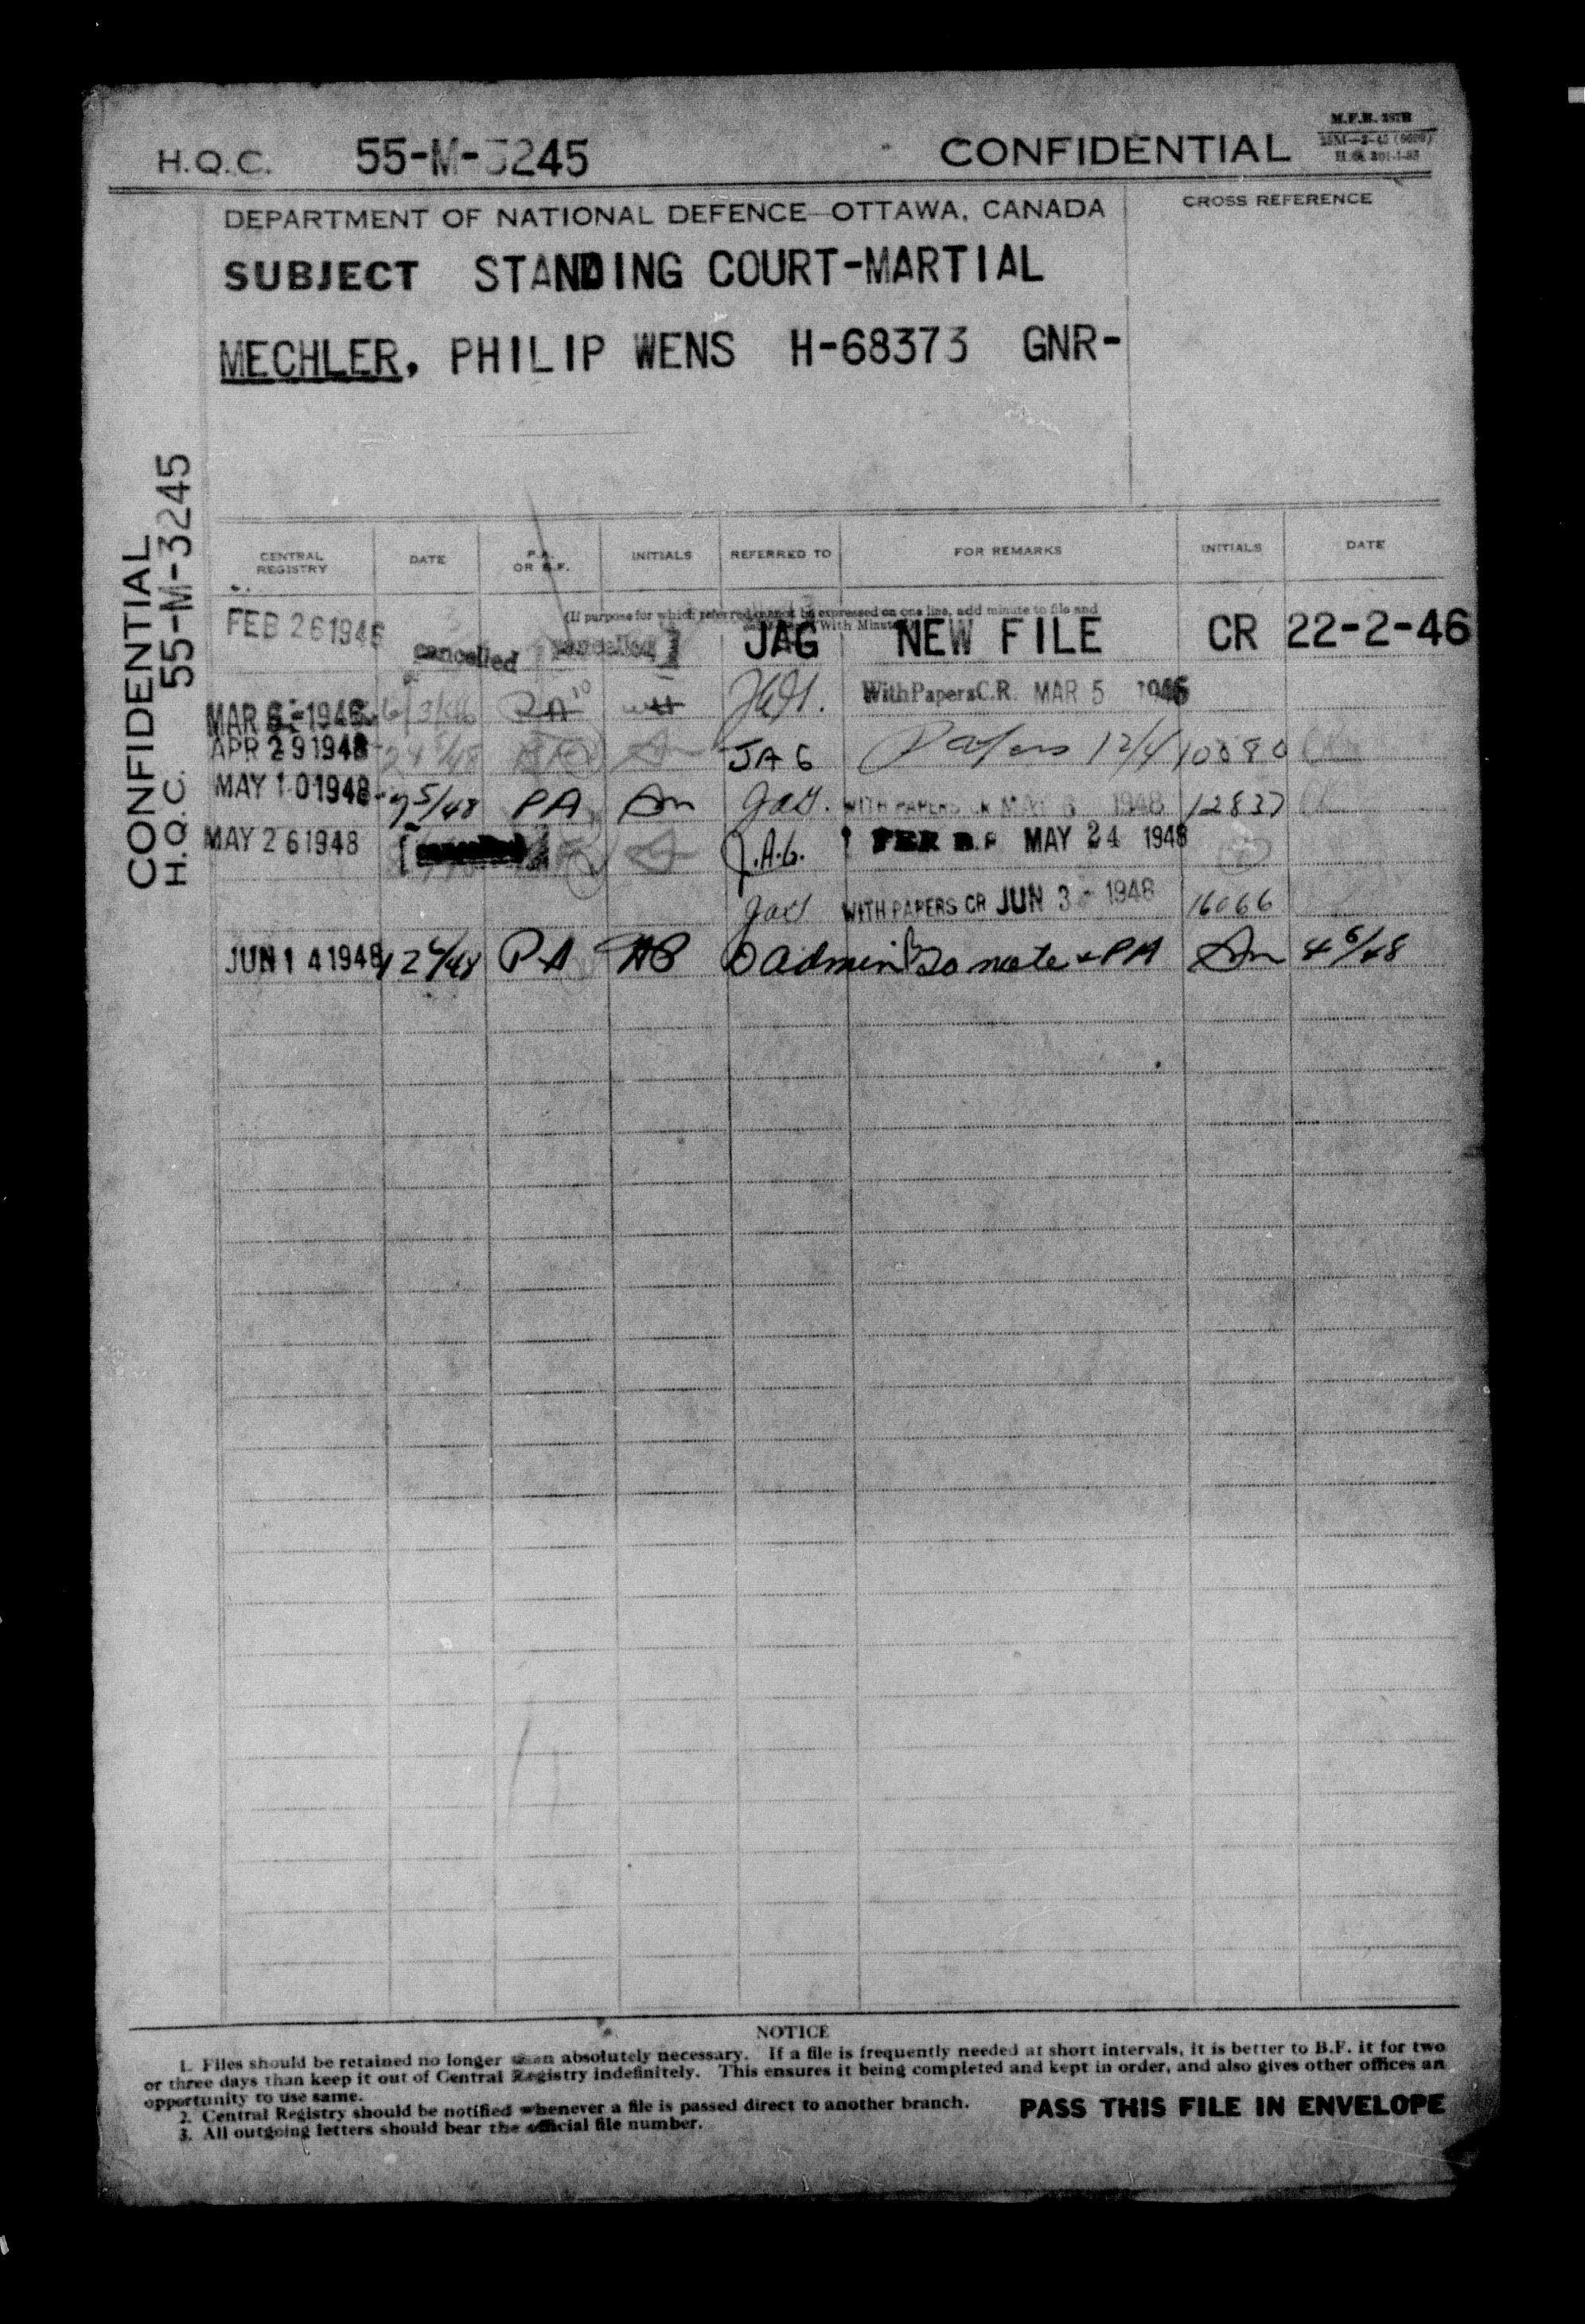 M.F.B. 287B
H.Q.C. 55-M-3245 CONFIDENTIAL
DEPARTMENT OF NATIONAL DEFENCE—OTTAWA, CANADA
CROSS REFERENCE
SUBJECT STANDING COURT-MARTIAL
MECHLER, PHILIP WENS H-68373 GNR-
CONFIDENTIAL
H.Q.C. 55-M-3245
CENTRAL REGISTRY DATE P.A. OR B.F. INITIALS REFERRED TO FOR REMARKS INITIALS DATE
(If purpose for which referred cannot be expressed on one line, add minute to file and
With Minute
FEB 26 1946 cancelled cancelled JAG NEW FILE CR 22-2-46
MAR 6-1946 6/3/46 PA JAG. With Papers C.R. MAR 5 1946
APR 29 1948 JAG Papers 12/4 10090
MAY 10 1948 7 5/48 PA JAG. WITH PAPERS CR MAY 1948 12837
MAY 26 1948 cancelled J.A.G. PER B.F. MAY 24 1948
JAG WITH PAPERS CR JUN 3 - 1948 16066
JUN 14 1948 12 6/48 PA D Admin To note & PA 4 6/48
NOTICE
1. Files should be retained no longer than absolutely necessary. If a file is frequently needed at short intervals, it is better to B.F. it for two
or three days than keep it out of Central Registry indefinitely. This ensures it being completed and kept in order, and also gives other offices an
opportunity to use same.
2. Central Registry should be notified whenever a file is passed direct to another branch.
3. All outgoing letters should bear the official file number.
PASS THIS FILE IN ENVELOPE